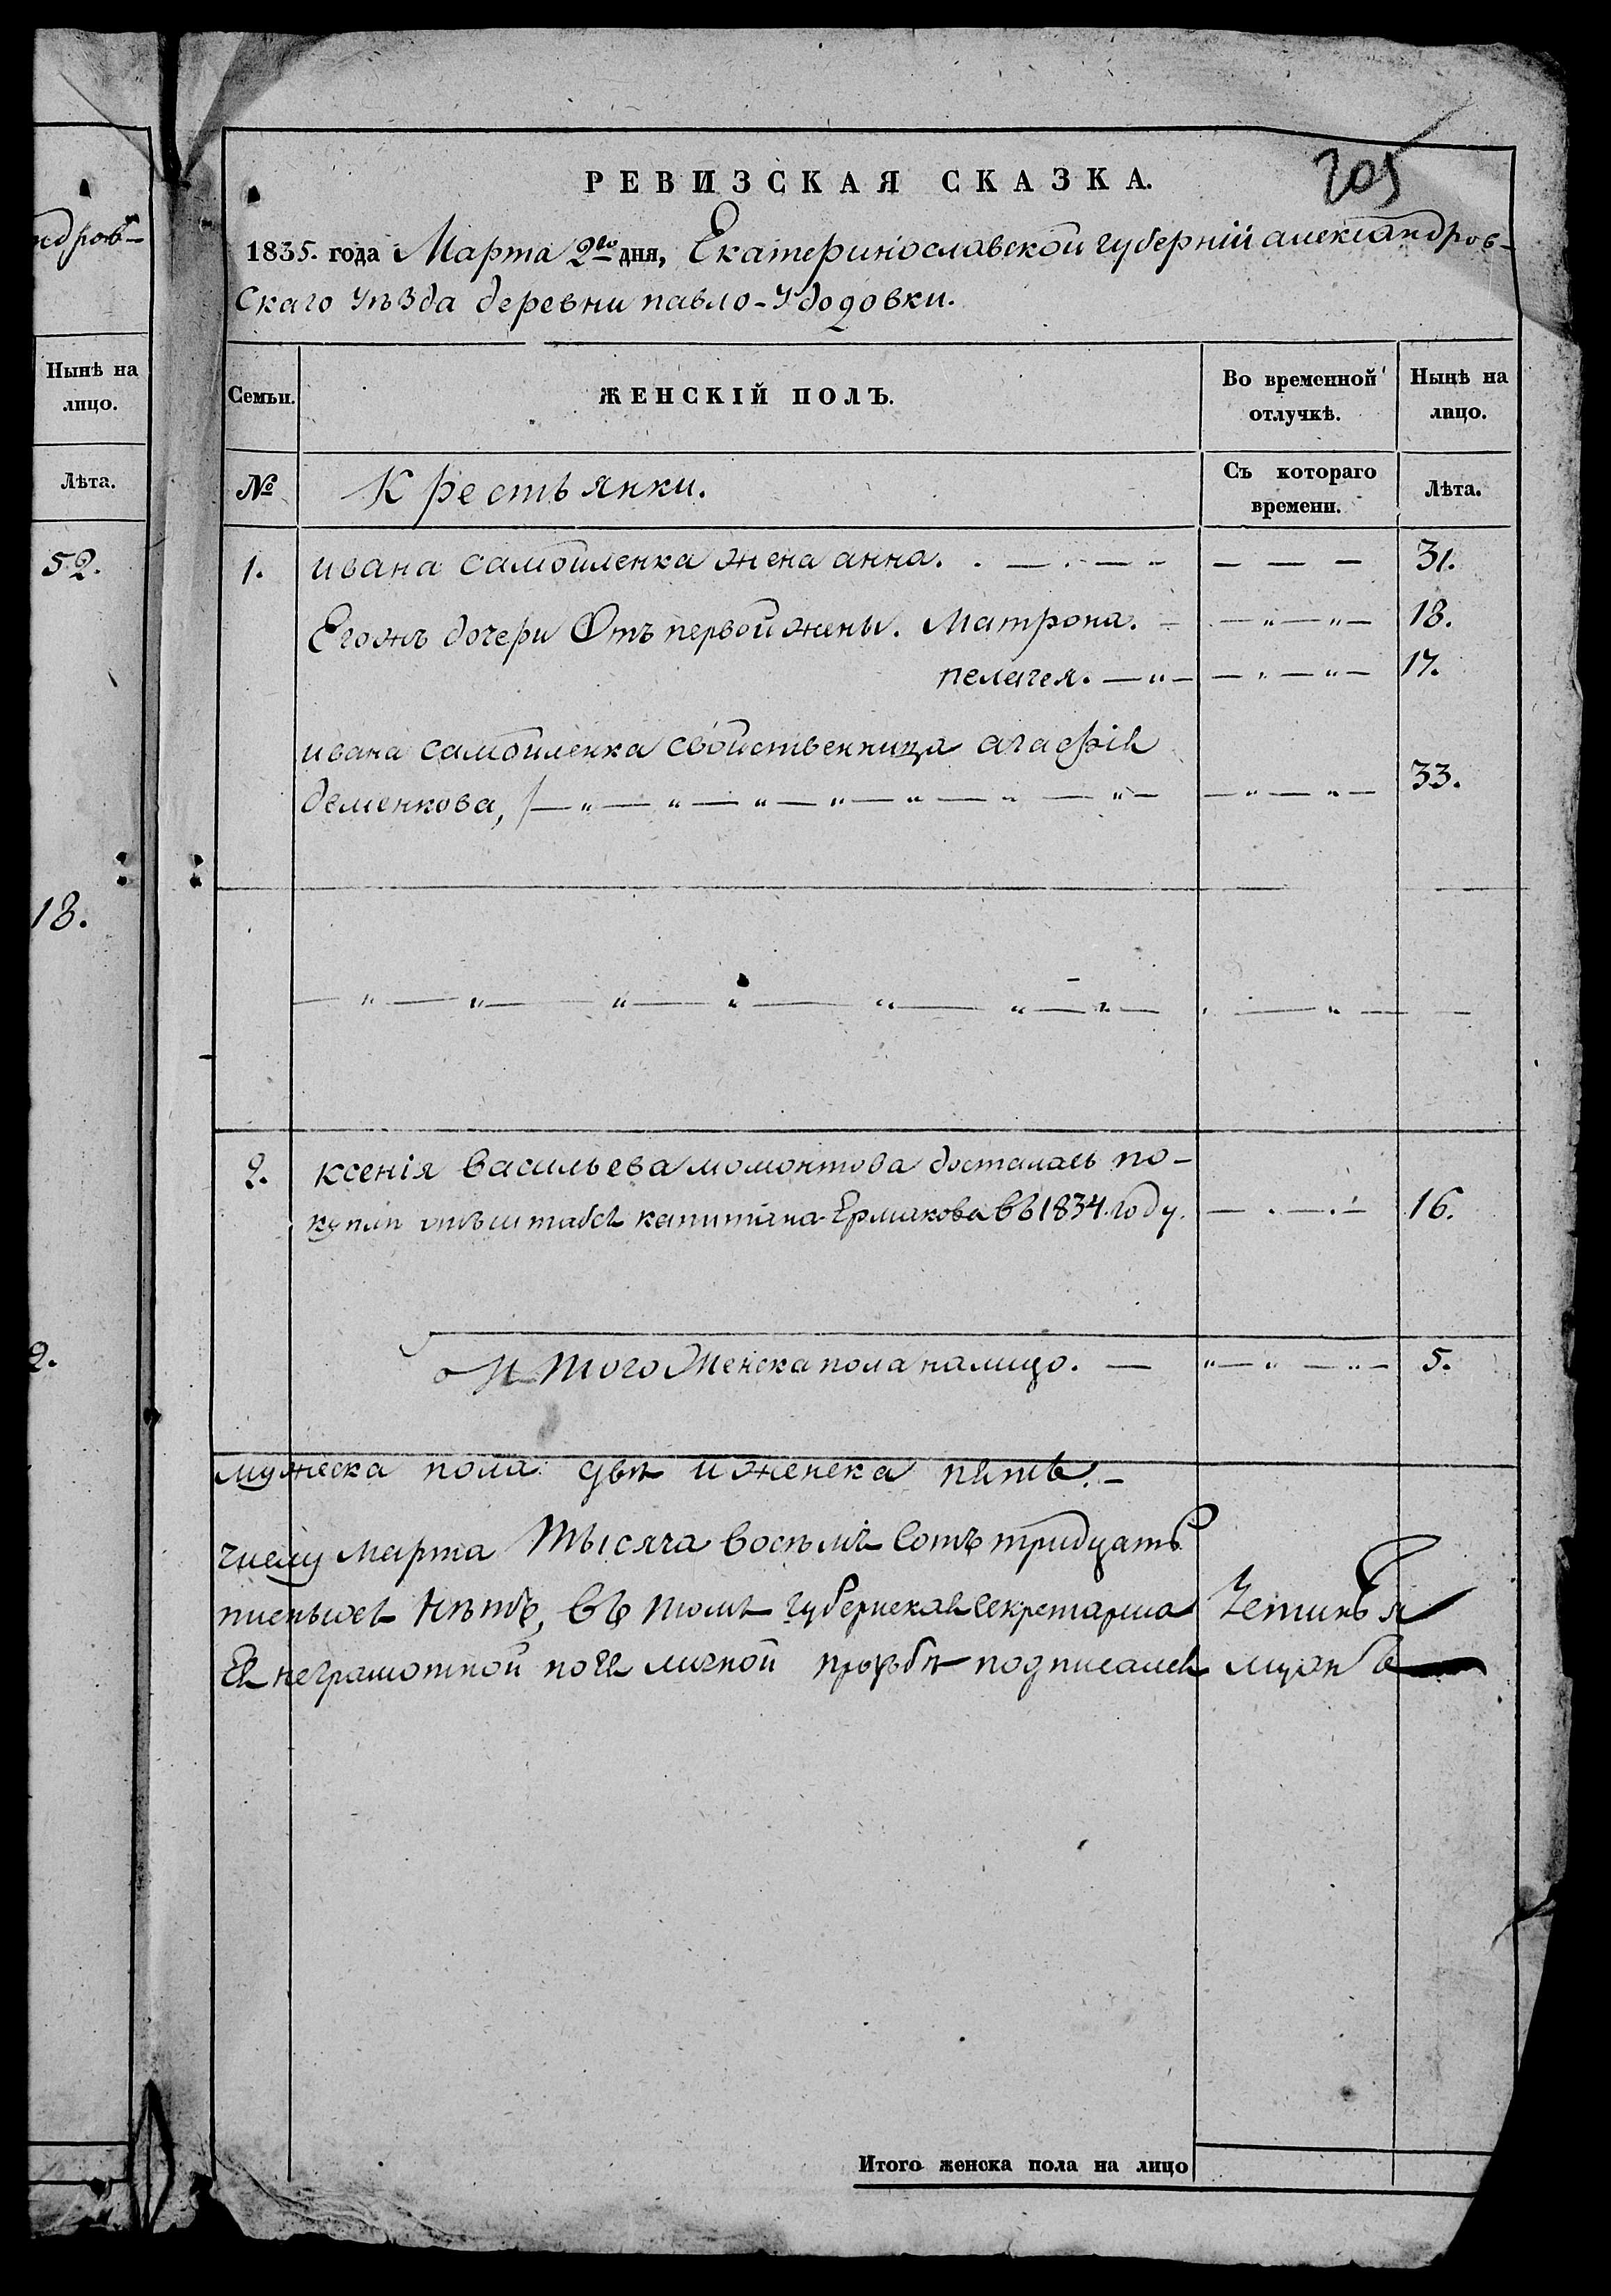 ндров-
Нынѣ на
лицо.
Лѣта.
52.
18.
2.
205
РЕВИЗСКАЯ СКАЗКА.
1835. года Марта 2го дня, Екатеринославской губерніи александров-
Скаго уѣзда деревни павло-
Семьи.
ЖЕНСКІЙ ПОЛЪ.
Во временной
отлучкѣ.
Нынѣ на
лицо.
№
Крестьянки.
Съ котораго
времени.
Лѣта.
1. ивана самойленка жена анна. 31.
Егожъ дочери Отъ первой жены. Матрона. 18.
пелагея. 17.
ивана самойленка свойственница агафія
деменкова, 33.
2. ксенія васильева момонтова досталась по-
купки отъ штабсъ капитана Ермакова въ 1834. году. 16.
Итого Женска пола налицо. 5.
мужеска пола двѣ и женска пять.
числу Марта Тысяча восемъ Сотъ тридцать
въ томъ губернская секретарша
Ея неграмотной по Ея личной прозьбѣ подписался мужъ
Итого женска пола на лицо